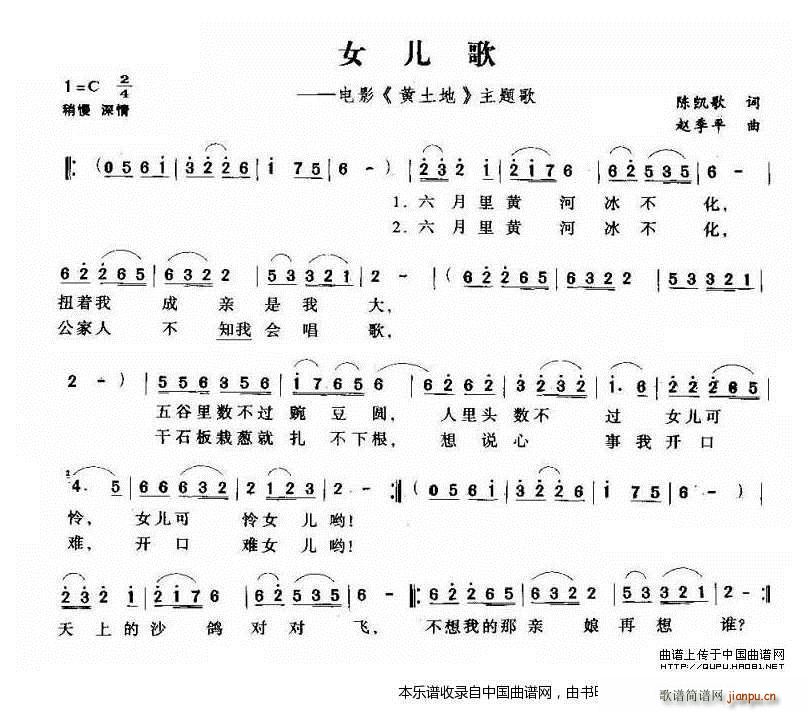 女儿歌
1=C 2/4
——电影《黄土地》主题歌
稍慢 深情
陈凯歌 词
赵季平 曲
‖: ( 0 5 6 i | 3 2 2 6 | i 7 5 | 6 - ) | 2 3 2 i | 2 i 7 6 | 6 2 5 3 5 | 6 - |
1. 六月里黄河冰不化,
2. 六月里黄河冰不化,
6 2 2 6 5 | 6 3 2 2 | 5 3 3 2 1 | 2 - | ( 6 2 2 6 5 | 6 3 2 2 | 5 3 3 2 1 |
扭着我成亲是我大,
公家人不知我会唱歌,
2 - ) | 5 5 6 3 5 6 | i 7 6 5 6 | 6 2 6 2 | 3 2 3 2 | i. 6 | 2 2 2 6 5 |
五谷里数不过豌豆圆, 人里头数不过女儿可
干石板栽葱就扎不下根, 想说心事我开口
4. 5 | 6 6 6 3 2 | 2 1 2 3 | 2 - :‖ ( 0 5 6 i | 3 2 2 6 | i 7 5 | 6 - ) |
怜, 女儿可怜女儿哟!
难, 开口难女儿哟!
2 3 2 i | 2 i 7 6 | 6 2 5 3 5 | 6 - ‖: 6 2 2 6 5 | 6 3 2 2 | 5 3 3 2 1 | 2 - :‖
天上的沙鸽对对飞, 不想我的那亲娘再想谁?
曲谱上传于中国曲谱网
HTTP://QUPU.HAO81.NET
本乐谱收录自中国曲谱网，由书
歌谱简谱网 jianpu.cn